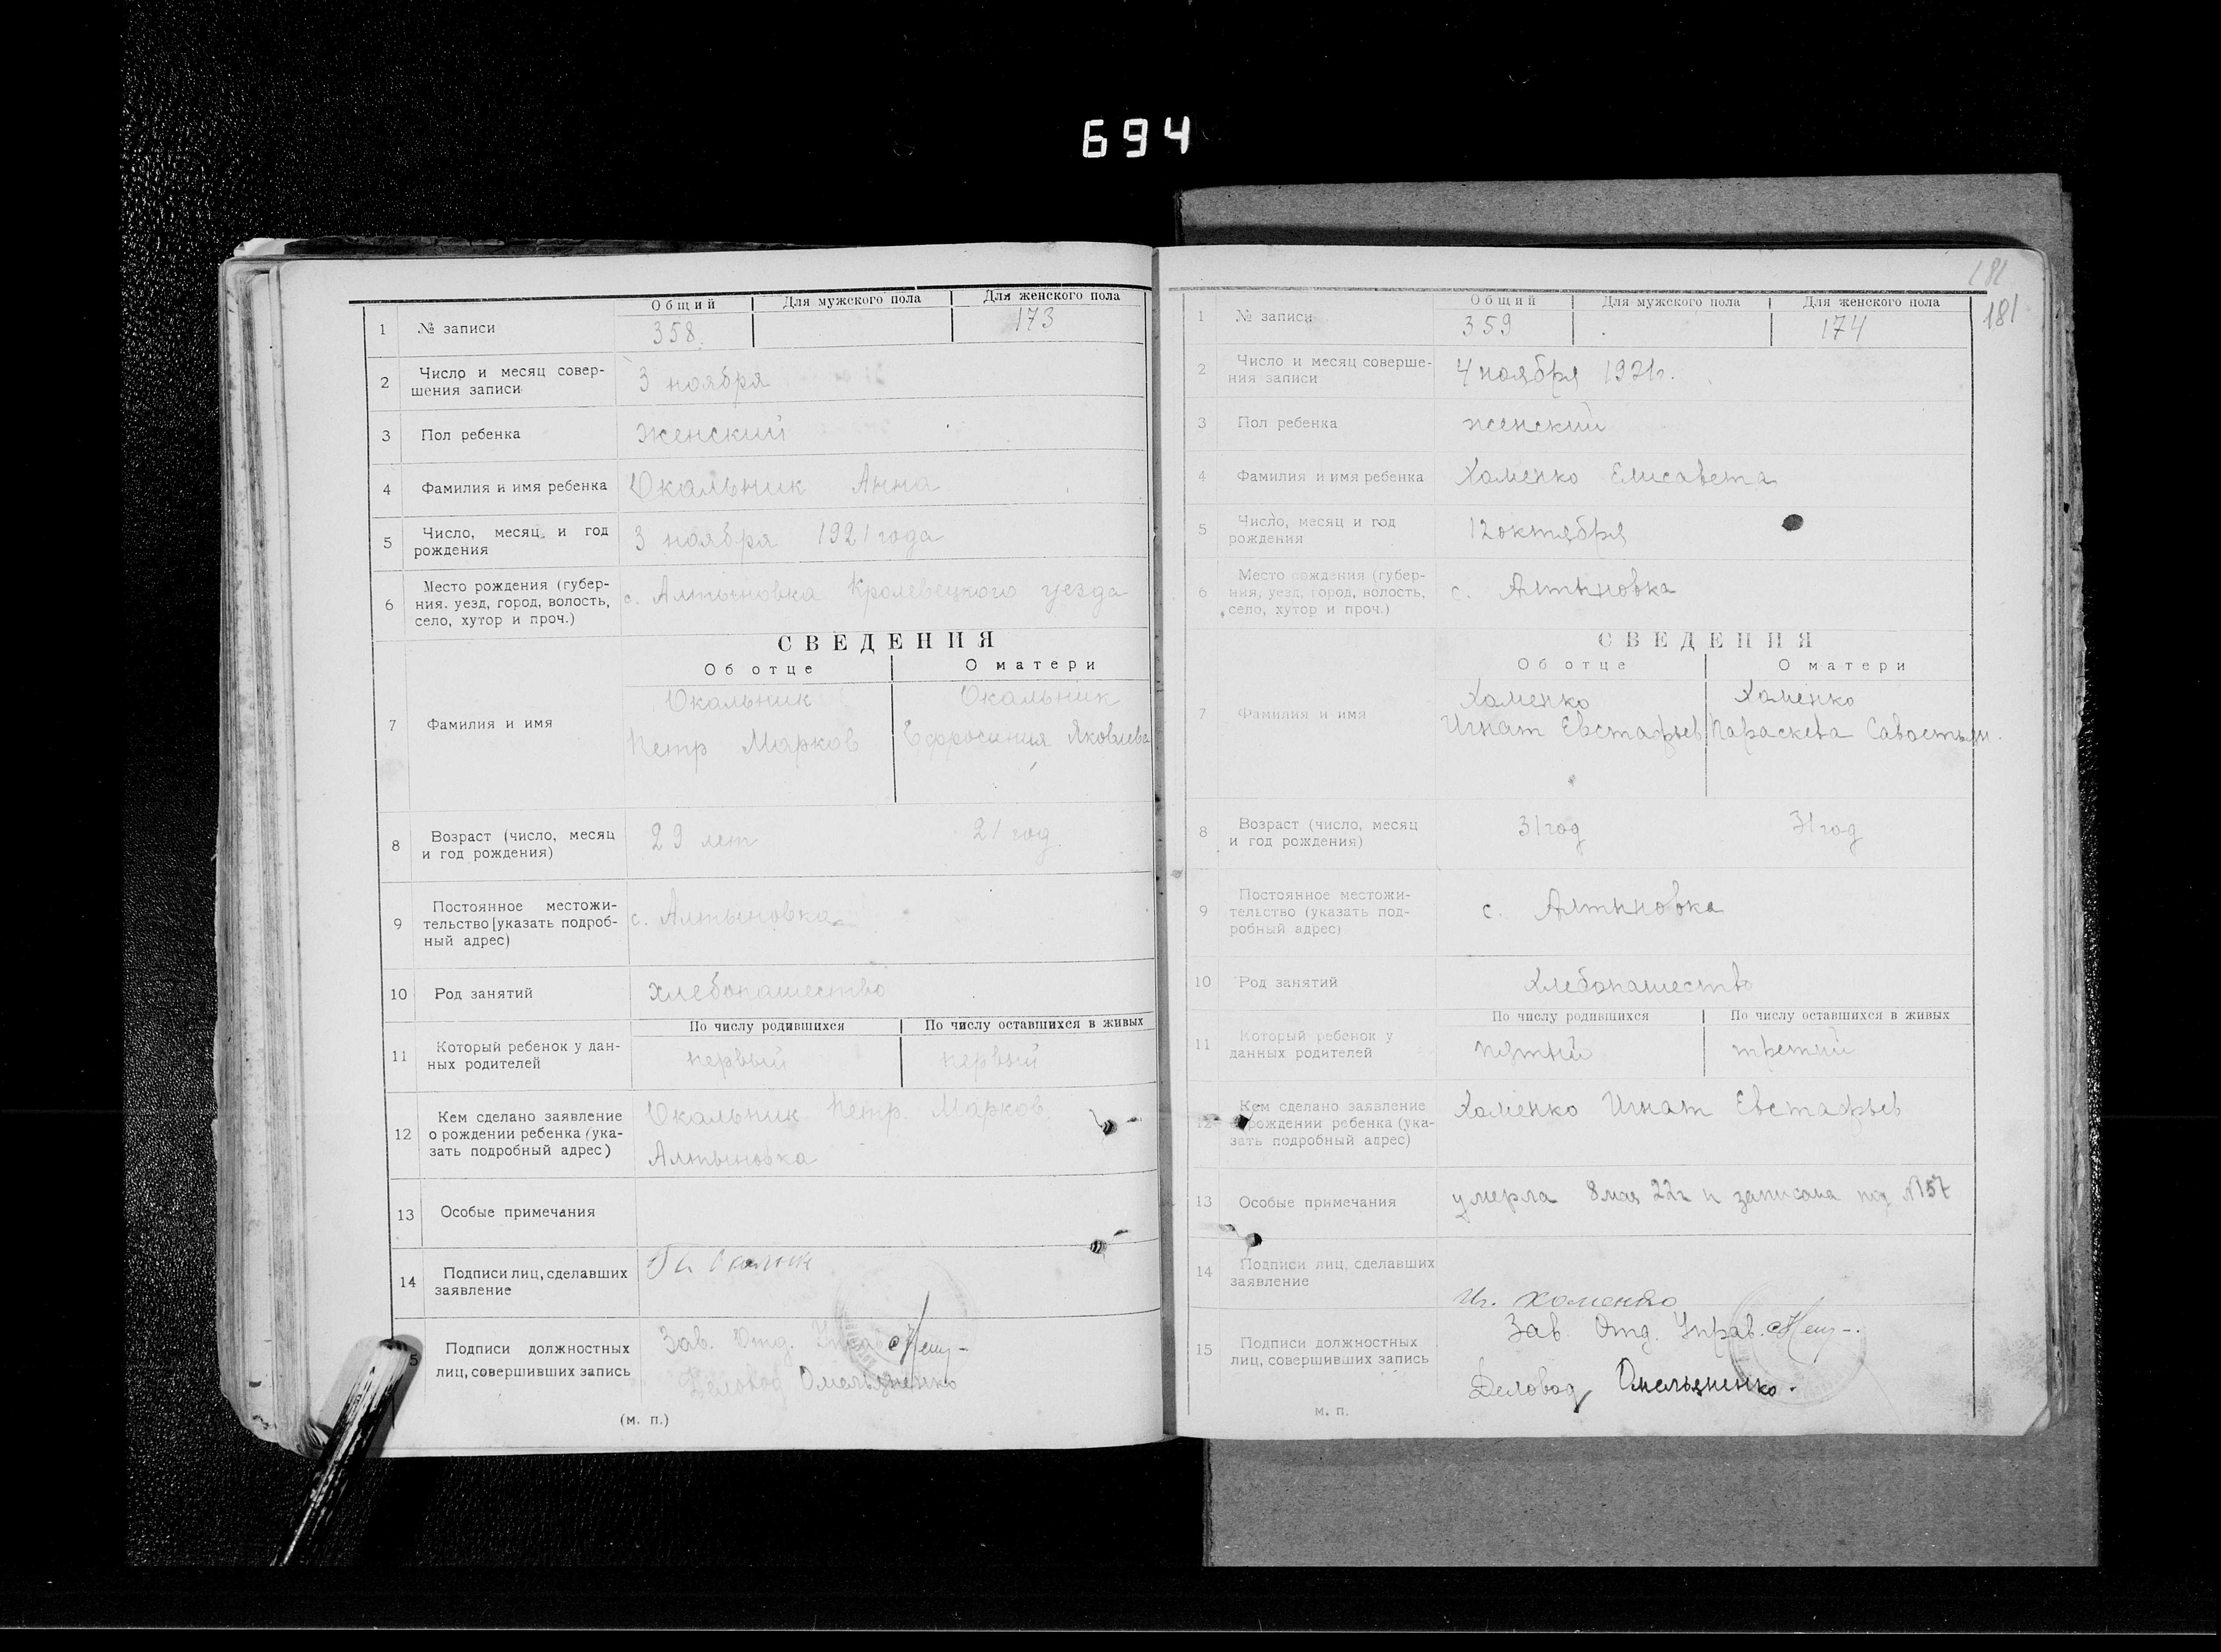 694
Общий Для мужского пола Для женского пола
1 № записи 358. 173
2 Число и месяц совер-
шения записи 3 ноября
3 Пол ребенка женский
4 Фамилия и имя ребенка Окальник Анна
5 Число, месяц и год
рождения 3 ноября 1921 года
6 Место рождения (губер-
ния, уезд, город, волость,
село, хутор и проч.) с. Алтыновка Кролевецкого уезда
СВЕДЕНИЯ
Об отце О матери
7 Фамилия и имя
Окальник Окальник
Петр Марков Ефросиния Яковлева
8 Возраст (число, месяц
и год рождения) 29 лет 21 год.
9 Постоянное местожи-
тельство [указать подроб-
ный адрес) с. Алтыновка
10 Род занятий хлебопашество
По числу родившихся По числу оставшихся в живых
11 Который ребенок у дан-
ных родителей первый первый
12 Кем сделано заявление
о рождении ребенка (ука-
зать подробный адрес)
Окальник Петр. Марков.
Алтыновка
13 Особые примечания
14 Подписи лиц, сделавших
заявление
5 Подписи должностных
лиц, совершивших запись
Зав. Отд. Управ.
Деловод Омельяненко
(м. п.)
181
181
Общий Для мужского пола Для женского пола
1 № записи 359 174
2 Число и месяц соверше-
ния записи 4 ноября 1921г.
3 Пол ребенка женский
4 Фамилия и имя ребенка Хоменко Елисавета
5 Число, месяц и год
рождения 12 октября
6 Место рождения (губер-
ния, уезд, город, волость,
село, хутор и проч.) с. Алтыновка
СВЕДЕНИЯ
Об отце О матери
7 Фамилия и имя
Хоменко Хоменко
Игнат Евстафьев Параскева Савостьян.
8 Возраст (число, месяц
и год рождения) 31 год 31 год
9 Постоянное местожи-
тельство (указать под-
робный адрес) с. Алтыновка
10 Род занятий Хлебопашество
По числу родившихся По числу оставшихся в живых
11 Который ребенок у
данных родителей пятый третий
12 Кем сделано заявление
о рождении ребенка (ука-
зать подробный адрес) Хоменко Игнат Евстафьев
13 Особые примечания умерла 8 мая 22г и записана под №157
14 Подписи лиц, сделавших
заявление
Иг. Хоменко
15 Подписи должностных
лиц, совершивших запись
Зав. Отд. Управ.
Деловод Омельяненко.
м. п.